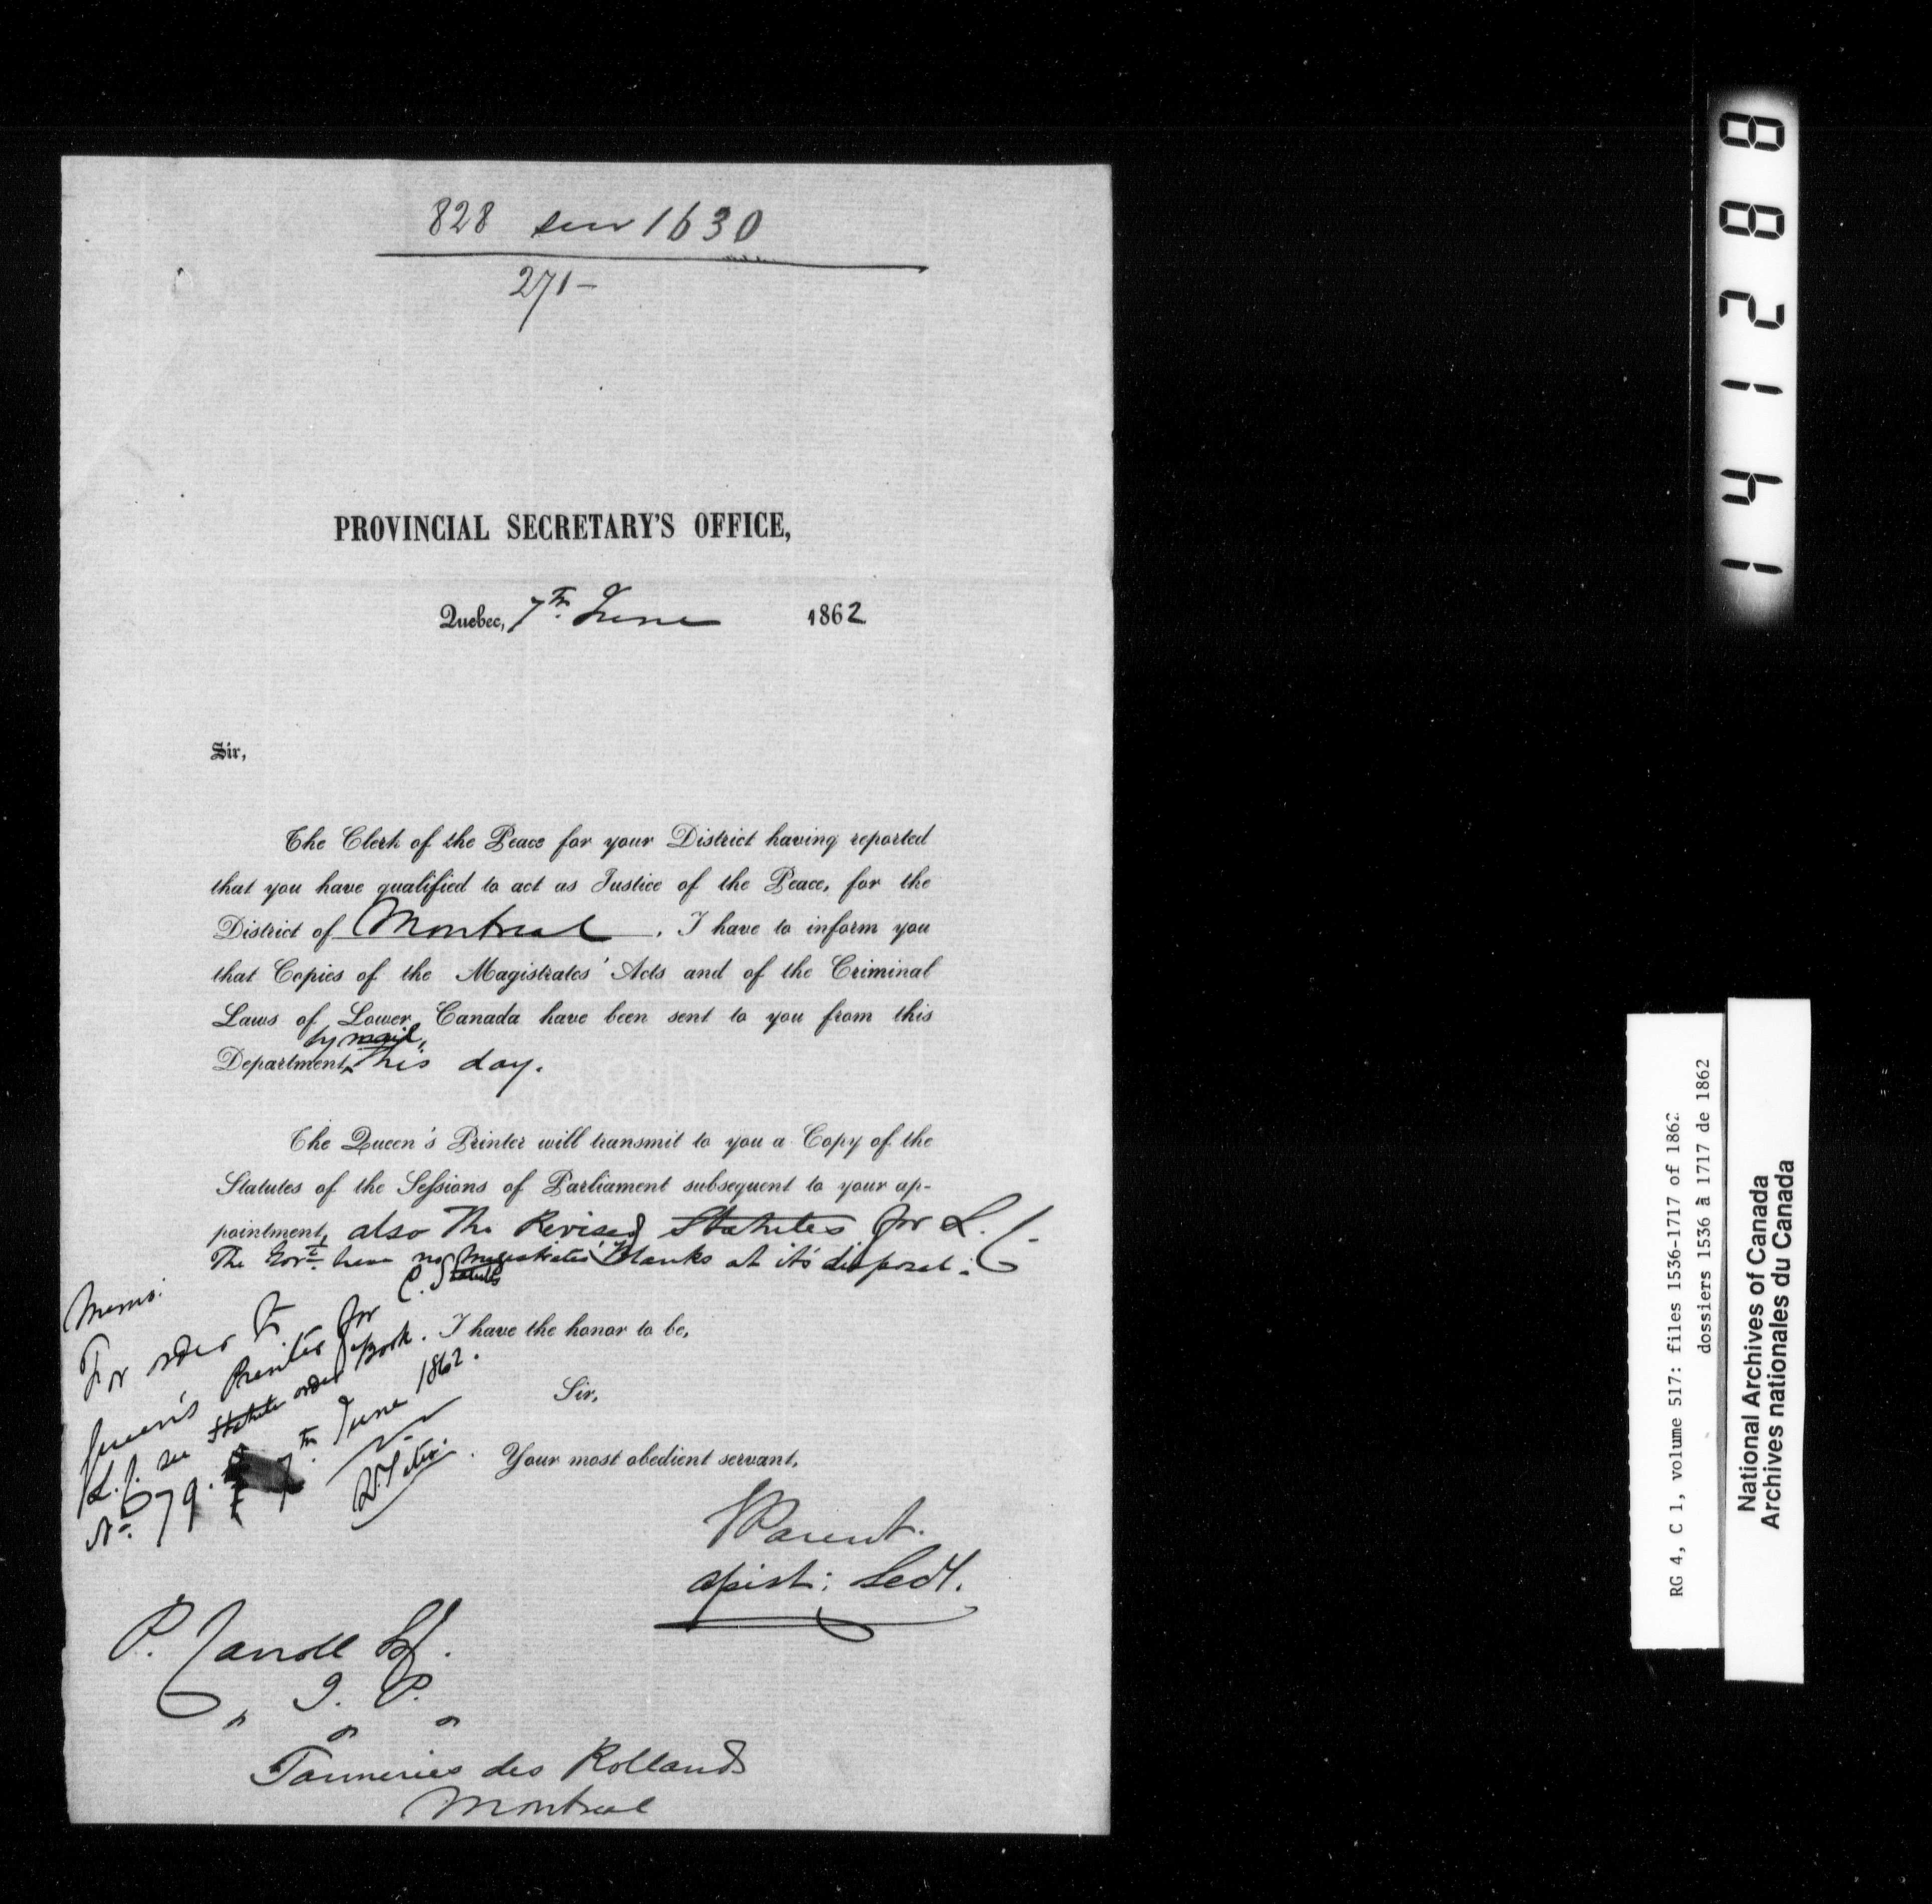 828 1630
271-
PROVINCIAL SECRETARY'S OFFICE,
Quebec, 7th June 1862
Sir,
The Clerk of the Peace for your District having reported
that you have qualified to act as Justice of the Peace, for the
District of Montreal. I have to inform you
that Copies of the Magistrates' Acts and of the Criminal
Laws of Lower Canada have been sent to you from this
by mail,
Department, this day.
The Queen's Printer will transmit to you a Copy of the
Statutes of the Sessions of Parliament subsequent to your ap-
pointment, also The Revised Statutes for L. C.
The Govt. have no Magistrates' Blanks at it's disposal.
Memo.
For order to
Queen's Printer for C. Statutes
L.C. see Statute order Book.
No. 79. 7th June 1862.
I have the honor to be,
Sir,
Your most obedient servant,
Parent.
Assist: Secy.
P. Carroll Esq.
J. P.
" " "
Tanneries des Rollands
Montreal
1 4 1 2 8 8
RG 4, C 1, volume 517: files 1536-1717 of 1862
dossiers 1536 à 1717 de 1862
National Archives of Canada
Archives nationales du Canada